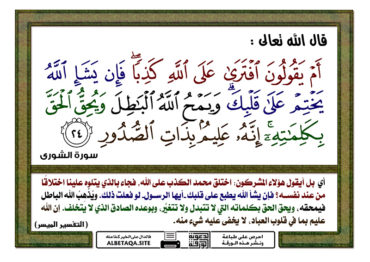 قال الله تعالى :
أَمْ يَقُولُونَ ٱفْتَرَىٰ عَلَى ٱللَّهِ كَذِبًاۖ فَإِن يَشَإِ ٱللَّهُ
يَخْتِمْ عَلَىٰ قَلْبِكَۗ وَيَمْحُ ٱللَّهُ ٱلْبَٰطِلَ وَيُحِقُّ ٱلْحَقَّ
بِكَلِمَٰتِهِۦٓۚ إِنَّهُۥ عَلِيمٌۢ بِذَاتِ ٱلصُّدُورِ ٢٤
سورة الشورى
أي بل أيقول هؤلاء المشركون: اختلق محمد الكذب على الله، فجاء بالذي يتلوه علينا اختلاقًا
من عند نفسه؟ فإن يشأ الله يطبع على قلبك -أيها الرسول- لو فعلت ذلك. ويُذهبُ الله الباطل
فيمحقه، ويحق الحق بكلماته التي لا تتبدل ولا تتغيَّر، وبوعده الصادق الذي لا يتخلف. إن الله
عليم بما في قلوب العباد، لا يخفى عليه شيء منه.
( التفسير الميسر )
احرص على طباعة
ونشر هذه الورقة
دعوية
الورقة
فالدال على الخير كفاعله
ALBETAQA.SITE